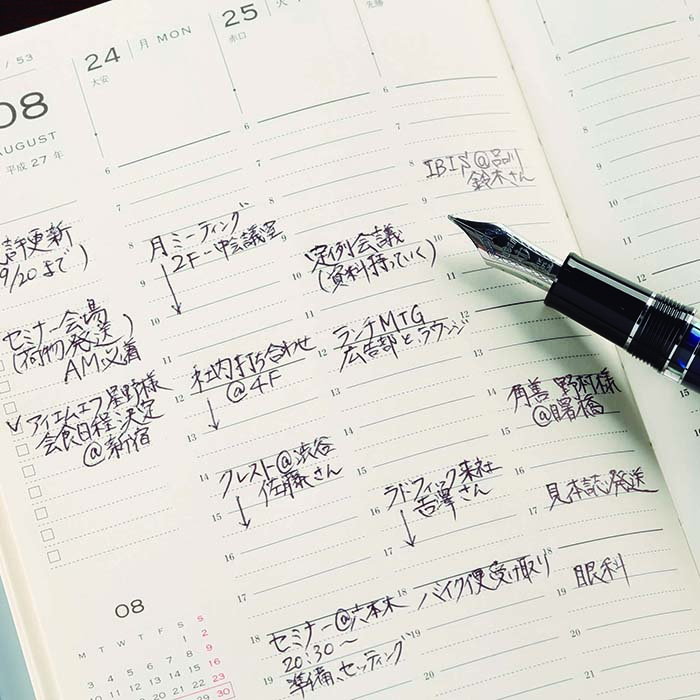 / 53
08
AUGUST
平成 27 年
許更新
9/20まで)
セミナー会場
(荷物発送)
AM必着
アイエムエフ星野様
会食日程決定
@新宿
08
M T W T F S S
24
月 MON
大安
月ミーティング
2F-中会議室
社内打ち合わせ
@4F
クレスト@渋谷
佐藤さん
セミナー@六本木
20:30〜
準備、セッティング
25
火
赤口
定例会議
(資料持っていく)
ランチMTG
広告部とラウンジ
ラドフィック来社
吉澤さん
バイク便受け取り
先勝
IBIS@品川
鈴木さん
角善 野村様
@曙橋
見本誌発送
眼科